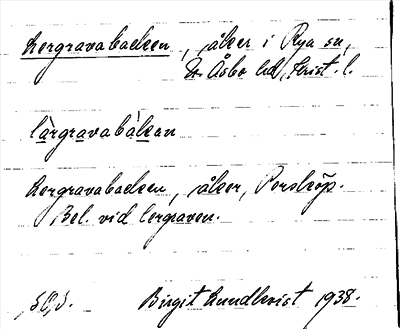 Lergravabacken, åker i Rya sn,
N. Åsbo hd, Krist. l.
lärgravabàkan
Lergravabacken, åker, Porstköp.
Bel. vid lergraven.
Birgit Lundkvist 1938.